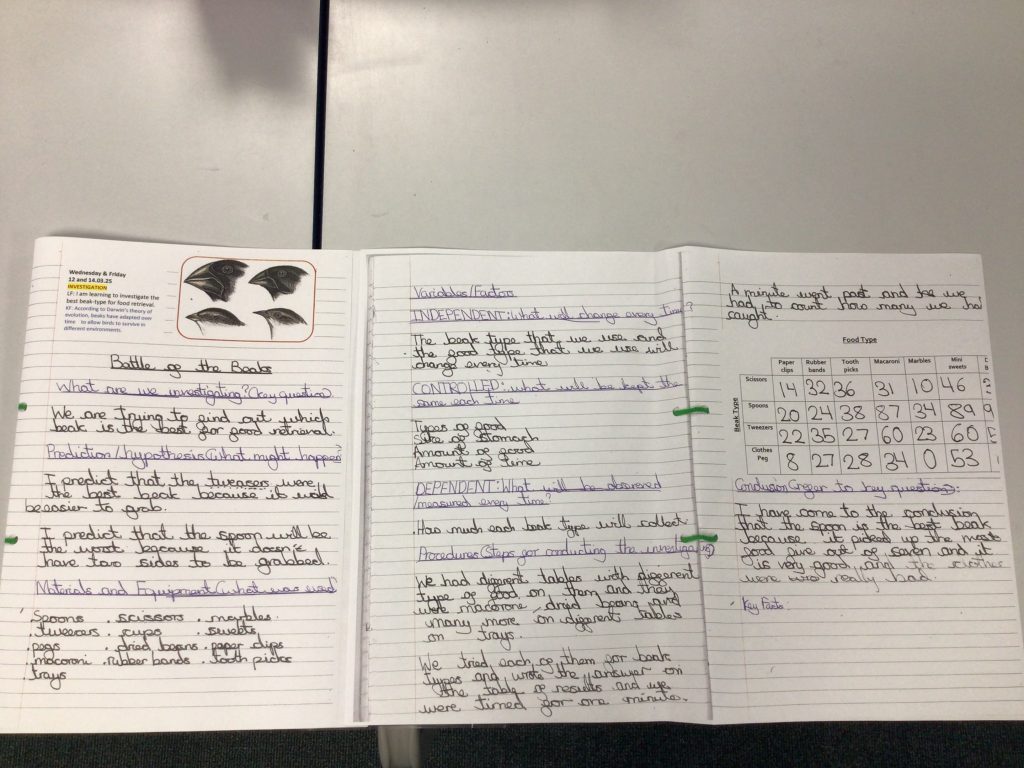 Wednesday & Friday
12 and 14.03.25
INVESTIGATION
LF: I am learning to investigate the
best beak-type for food retrieval.
KF: According to Darwin's theory of
evolution, beaks have adapted over
time to allow birds to survive in
different environments.
Battle of the Beaks
What are we investigating? (key question)
We are trying to find out which
beak is the best for food retrieval.
Prediction/hypothesis (what might happen?
I predict that the tweasers were
the best beak because it would
be easier to grab.
I predict that the spoon will be
the worst because it doesn't
have two sides to be grabbed.
Materials and Equipment (what was used
Spoons . scissors . marbles
. tweezers . cups . sweets
. pegs . dried beans . paper clips
. macaroni . rubber bands . tooth picks
. trays
Variables/Factors
INDEPENDENT: What will change every time?
The beak type that we use and
the food type that we use will
change every time
CONTROLLED: what will be kept the
same each time
Types of food
Size of stomach
Amount of food
Amount of time
DEPENDENT: What will be observed
measured every time?
How much each beak type will collect
Procedures (Steps for conducting the investigation)
We had differents tables with different
type of food on them and they
were macarone, dried beans and
many more on different tables
on trays.
We tried each of them for beak
types and wrote the answer on
the table of results and we
were timed for one minute.
A minute went past and we
had to count how many we had
caught.
Food Type
Paper clips Rubber bands Tooth picks Macaroni Marbles Mini sweets
Beak Type
Scissors 14 32 36 31 10 46
Spoons 20 24 38 87 34 89 9
Tweezers 22 35 27 60 23 60
Clothes Peg 8 27 28 34 0 53
Conclusion (refer to key question):
I have come to the conclusion
that the spoon is the best beak
because it picked up the most
food five out of seven and it
is very good, and the
were was really bad.
Key Facts: